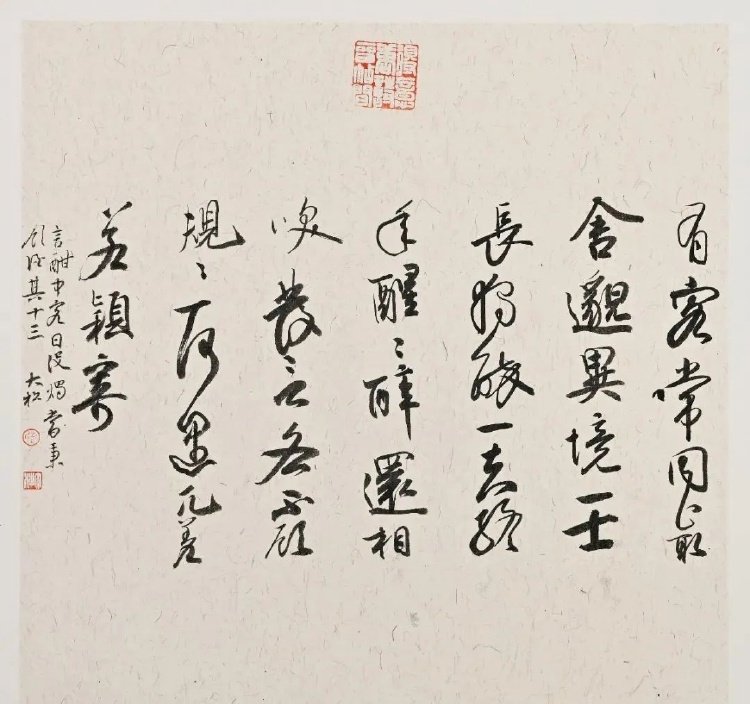 有客常同止取
舍邈異境一士
長獨醉一夫終
年醒〻醉還相
咲發言各不領
規〻一何愚兀差
若穎寄
言酣中客日沒燭當秉
飲酒其十三 大